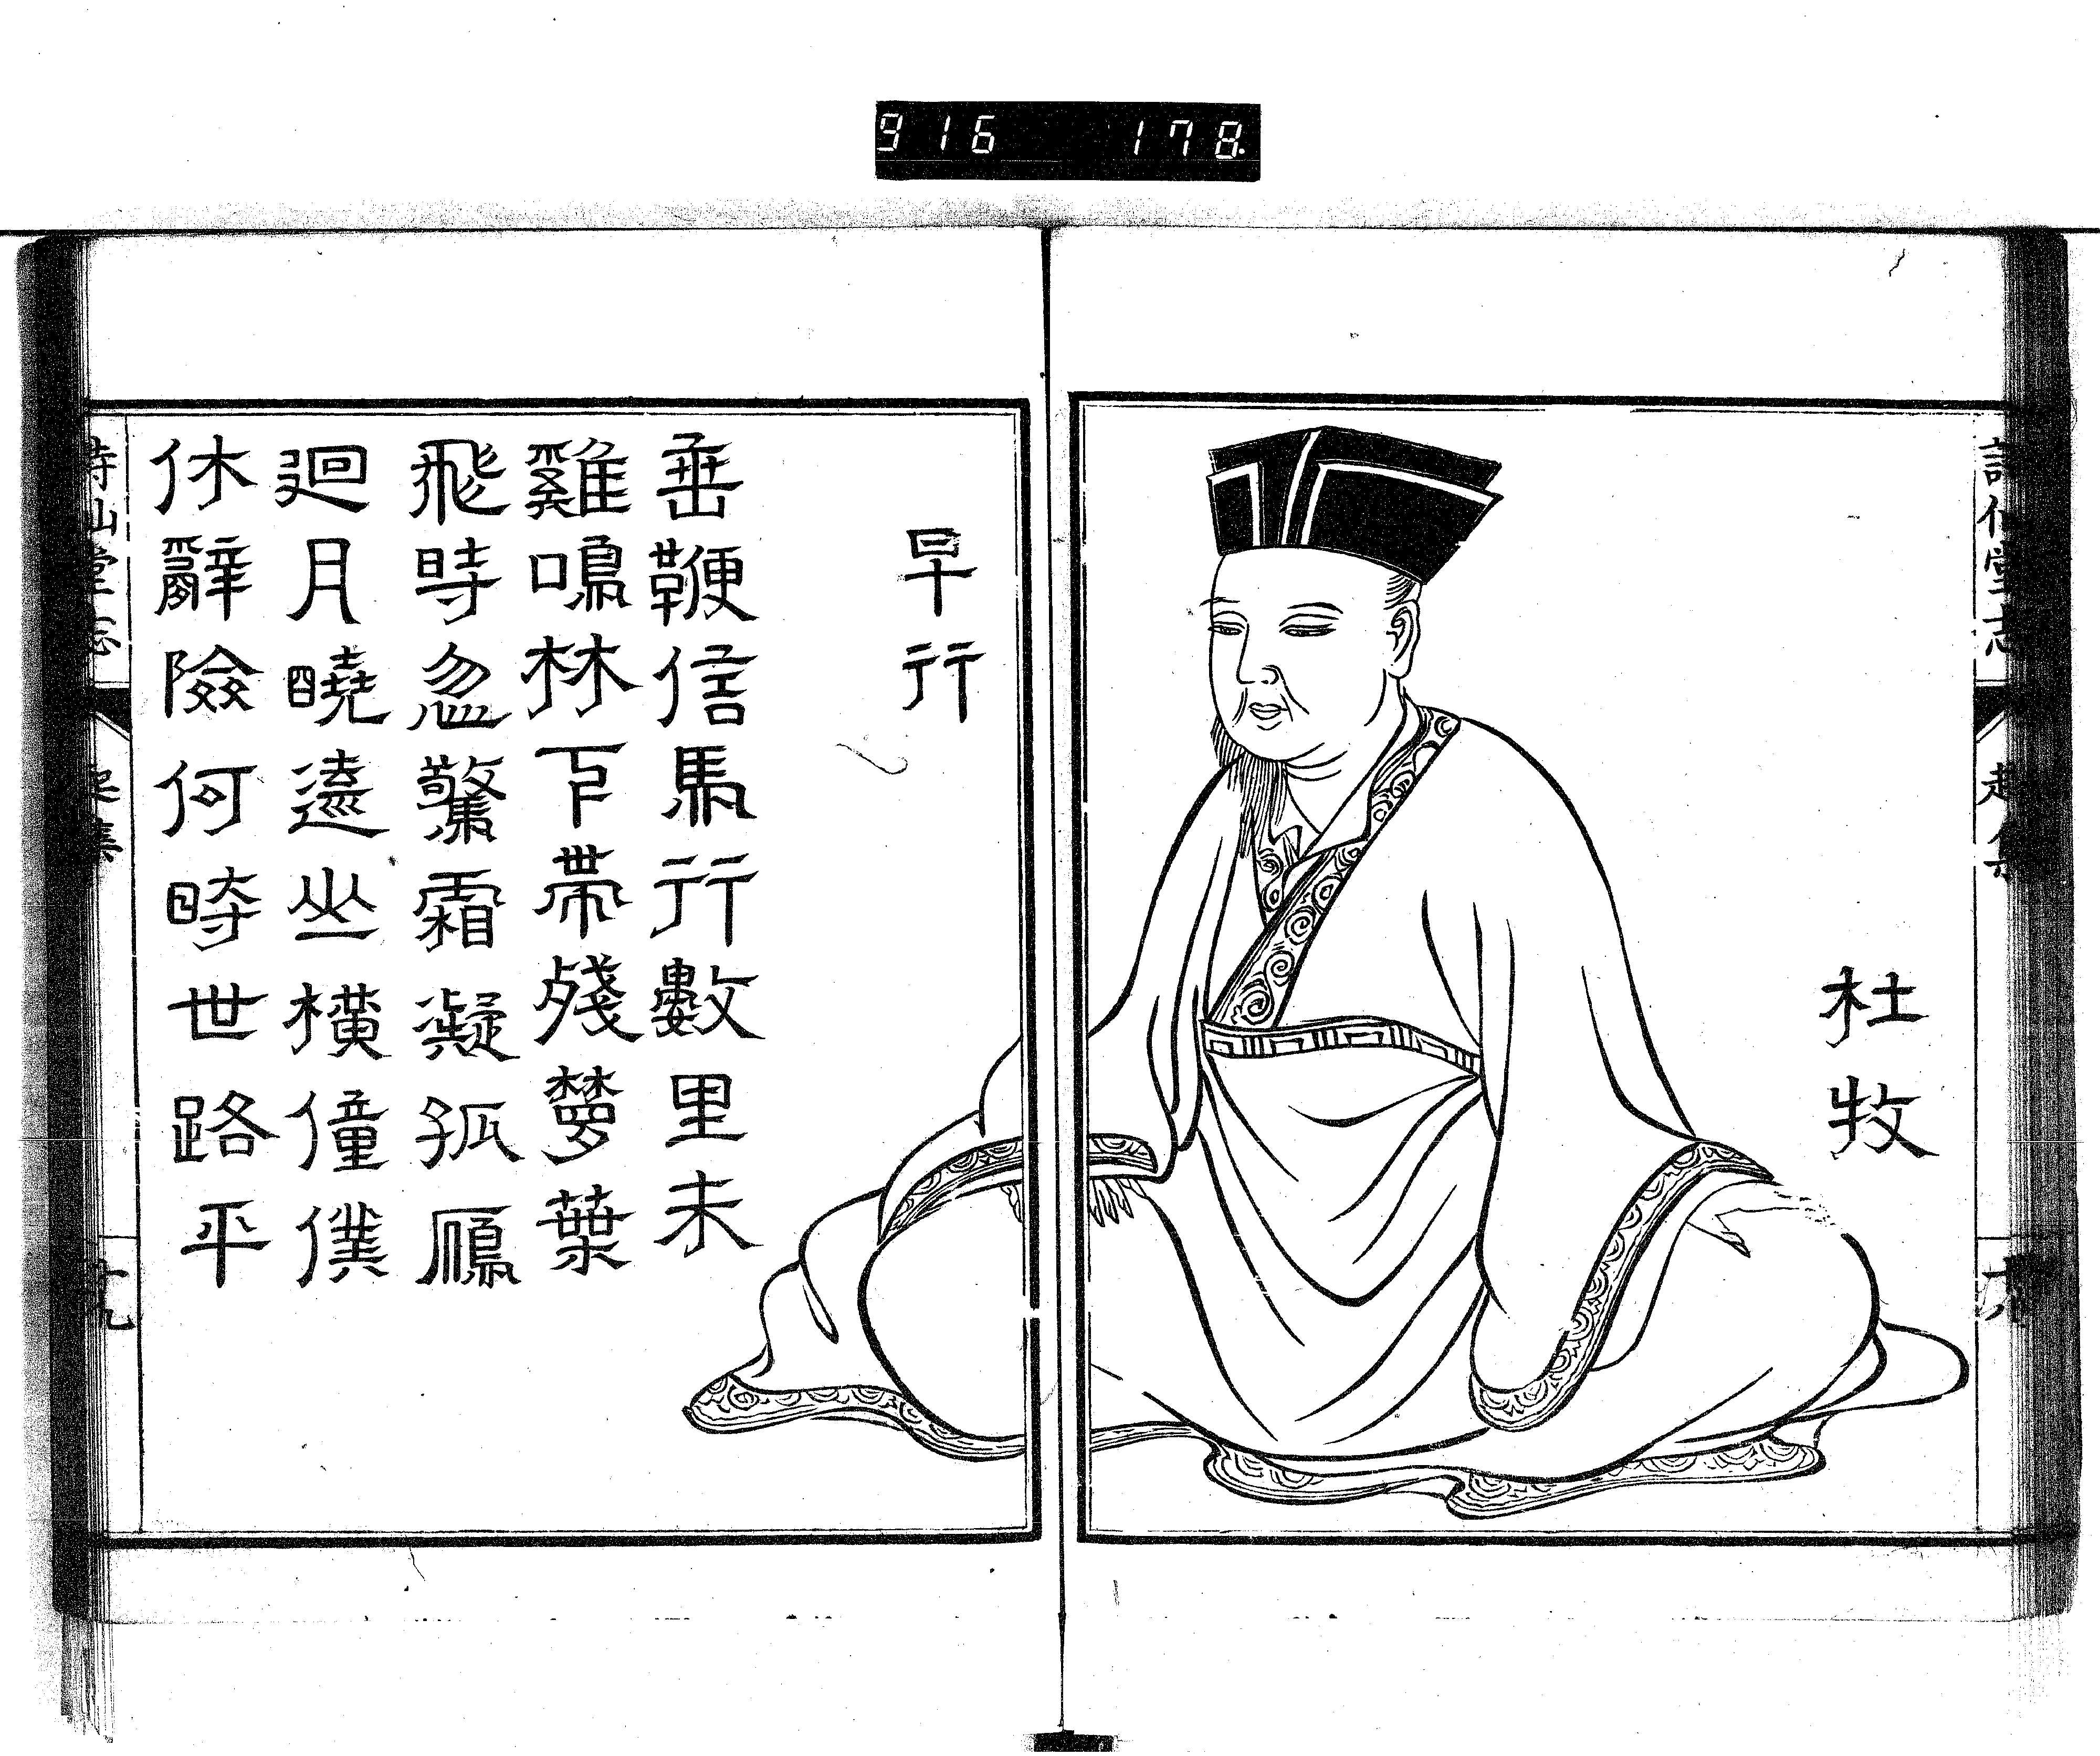 916 178
詩仙堂志
杜牧
早行
垂鞭信馬行數里未
雞鳴林下帶殘夢葉
飛時忽驚霜凝孤鴈
迴月曉遠山橫僮僕
休辭險何時世路平
詩仙堂志